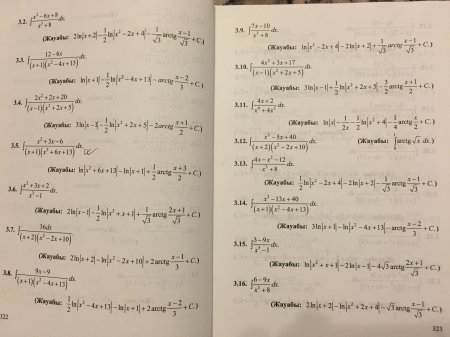 3.2. ∫ (x²−6x+8)/(x³+8) dx.
(Жауабы: 2ln|x+2| − 1/2 ln|x²−2x+4| − 1/√3 arctg (x−1)/√3 + C.)
3.3. ∫ (12−6x)/((x+1)(x²−4x+13)) dx.
(Жауабы: ln|x+1| − 1/2 ln|x²−4x+13| − arctg (x−2)/3 + C.)
3.4. ∫ (2x²+2x+20)/((x−1)(x²+2x+5)) dx.
(Жауабы: 3ln|x−1| − 1/2 ln|x²+2x+5| − 2arctg (x+1)/2 + C.)
3.5. ∫ (x²+3x−6)/((x+1)(x²+6x+13)) dx.
(Жауабы: ln|x²+6x+13| − ln|x+1| + 1/2 arctg (x+3)/2 + C.)
3.6. ∫ (x²+3x+2)/(x³−1) dx.
(Жауабы: 2ln|x−1| − 1/2 ln|x²+x+1| + 1/√3 arctg (2x+1)/√3 + C.)
3.7. ∫ 36dx/((x+2)(x²−2x+10)).
(Жауабы: 2ln|x+2| − ln|x²−2x+10| + 2arctg (x−1)/3 + C.)
3.8. ∫ (9x−9)/((x+1)(x²−4x+13)) dx.
(Жауабы: 1/2 ln|x²−4x+13| − ln|x+1| + 2arctg (x−2)/3 + C.)
322
3.9. ∫ (7x−10)/(x³+8) dx.
(Жауабы: ln|x²−2x+4| − 2ln|x+2| + 1/√3 arctg (x−1)/√3 + C.)
3.10. ∫ (4x²+3x+17)/((x−1)(x²+2x+5)) dx.
(Жауабы: 3ln|x−1| + 1/2 ln|x²+2x+5| − 3/2 arctg (x+1)/2 + C.)
3.11. ∫ (4x+2)/(x⁴+4x²) dx.
(Жауабы: ln|x| − 1/2x − 1/2 ln|x²+4| − 1/4 arctg x/2 + C.)
3.12. ∫ (x²−5x+40)/((x+2)(x²−2x+10)) dx.
(Жауабы: ∫ arctg √x dx.)
3.13. ∫ (4x−x²−12)/(x³+8) dx.
(Жауабы: 1/2 ln|x²−2x+4| − 2ln|x+2| − 1/√3 arctg (x−1)/√3 + C.)
3.14. ∫ (x²−13x+40)/((x+1)(x²−4x+13)) dx.
(Жауабы: 3ln|x+1| − ln|x²−4x+13| − arctg (x−2)/3 + C.)
3.15. ∫ (3−9x)/(x³−1) dx.
(Жауабы: ln|x²+x+1| − 2ln|x−1| − 4√3 arctg (2x+1)/√3 + C.)
3.16. ∫ (6−9x)/(x³+8) dx.
(Жауабы: 2ln|x+2| − ln|x²−2x+4| − √3 arctg (x−1)/√3 + C.)
323